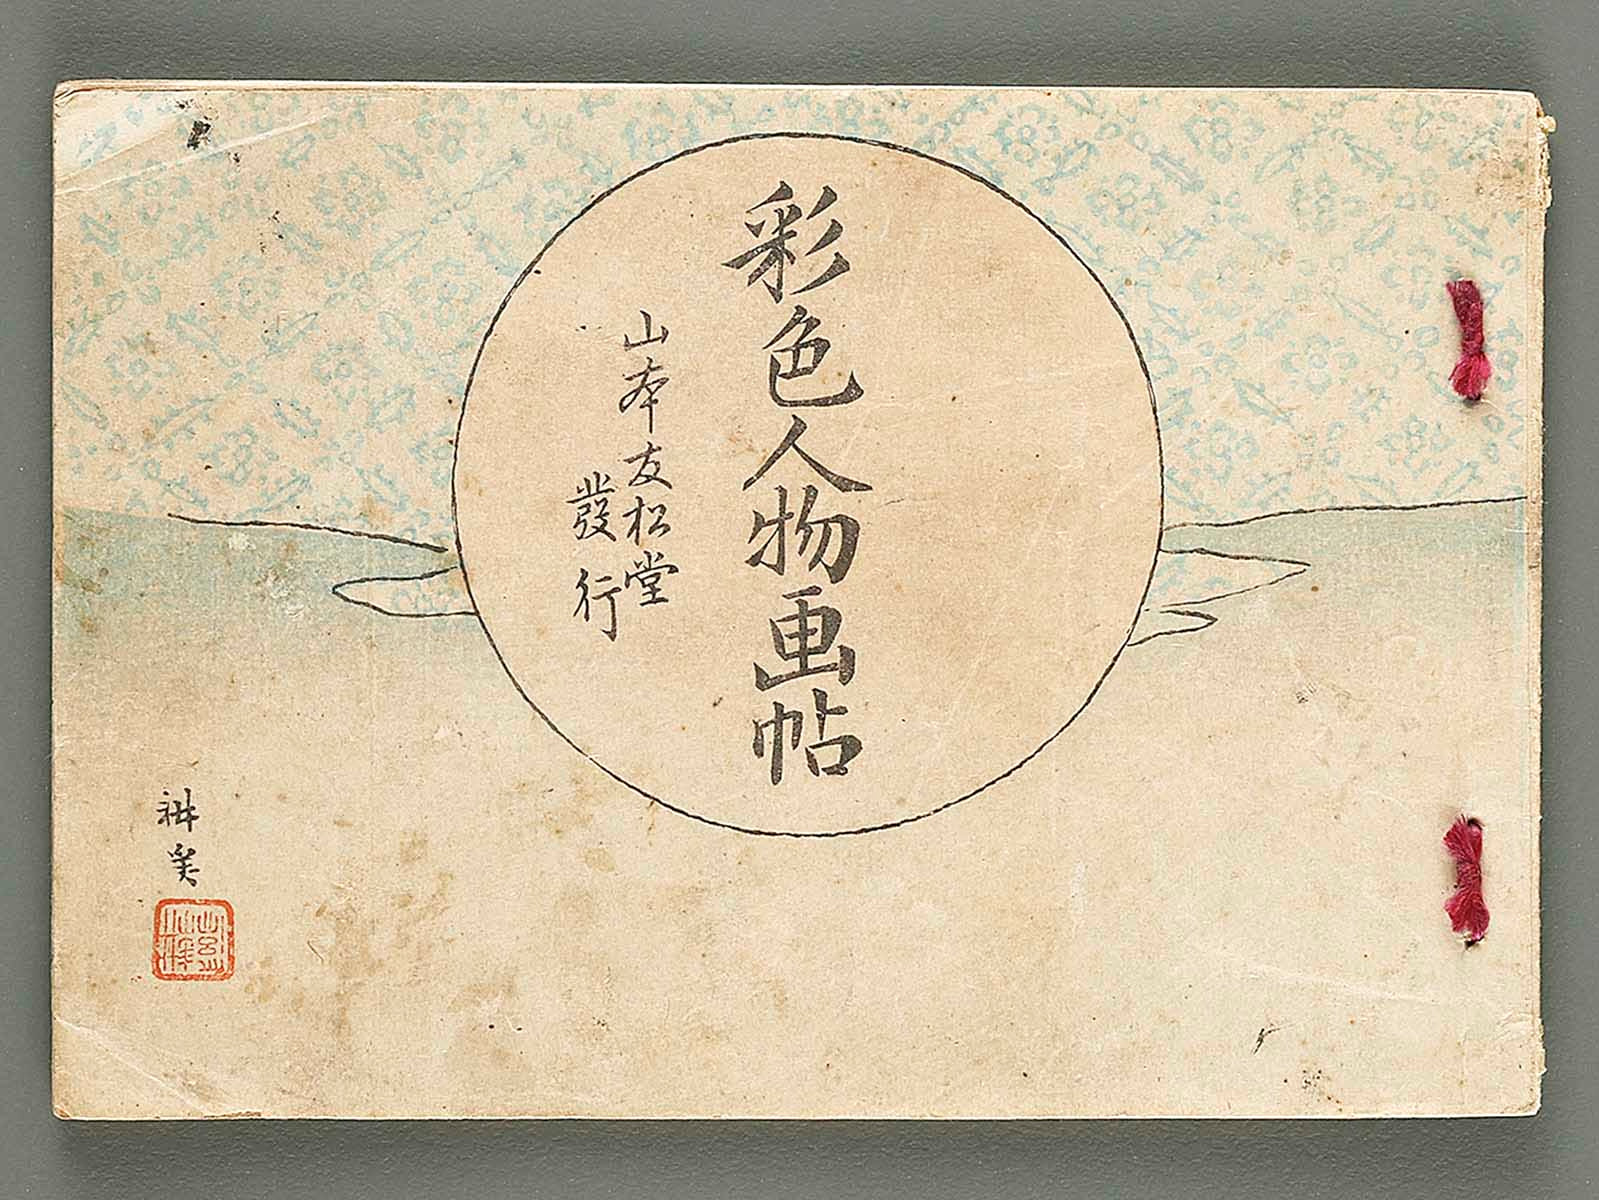 彩色人物画帖
山本友松堂
發行
耕寒